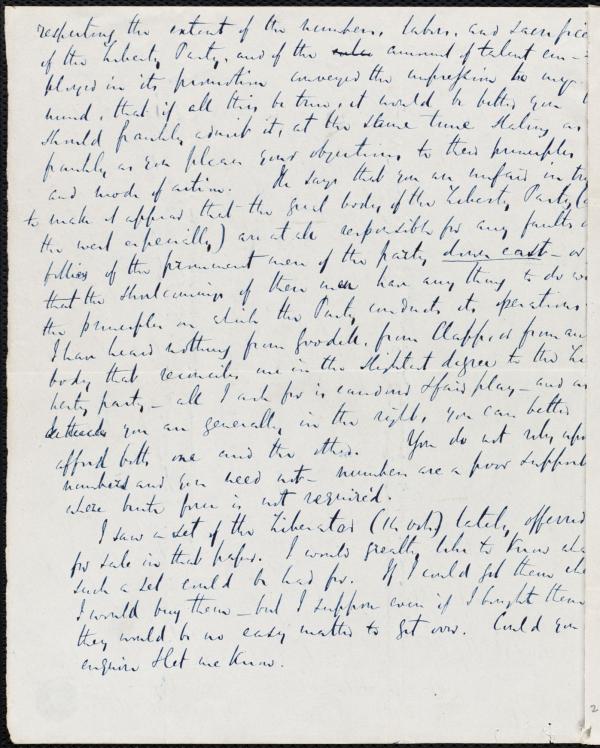 respecting the extent of the numbers, labors, and sacrifice
of the Liberty Party, and of the amount of talent em-
ployed in its promotion conveyed the impression to my
mind, that if all this be true, it would be better you
should frankly admit it, at the same time stating as
frankly as you please your objections to their principles
and mode of action. He says that you are unfair in try
to make it appear that the great body of the Liberty Party (
the west especially) are at all responsible for any faults
follies of the prominent men of the party down east - or
that the shortcomings of these men have any thing to do
the principles on which the Party conducts its operations
I have heard nothing from Goodell, from Clapp, or from any
body that reconciles me in the slightest degree to the Li
berty party - all I ask for is candour & fair play - and as
you are generally in the right, you can better
afford both one and the other. You do not rely upon
numbers and you need not - numbers are a poor support
where brute force is not required.
I saw a set of the Liberator (14 vols) lately offered
for sale in that paper. I would greatly like to know
such a set could be had for. If I could get them
I would buy them - but I suppose even if I bought them
they would be no easy matter to get over. Could you
enquire & let me know.
2